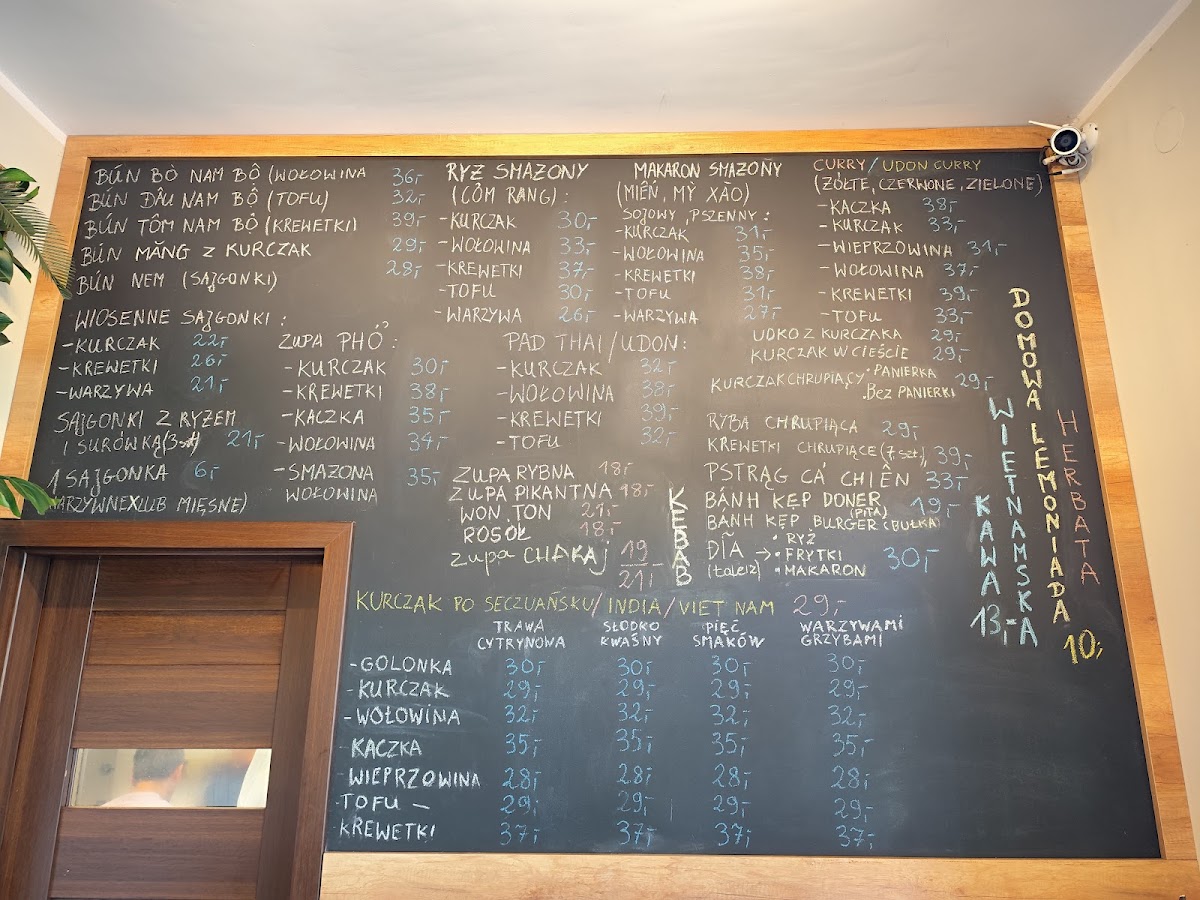 BÚN BÒ NAM BỘ (WOŁOWINA 36,-
BÚN ĐẬU NAM BỘ (TOFU) 32,-
BÚN TÔM NAM BỘ (KREWETKI) 39,-
BÚN MĂNG Z KURCZAK 29,-
BÚN NEM (SAJGONKI) 29,-
WIOSENNE SAJGONKI:
-KURCZAK 22,-
-KREWETKI 26,-
-WARZYWA 21,-
SAJGONKI Z RYŻEM
I SURÓWKĄ (3szt) 21,-
1 SAJGONKA 6,-
WARZYWNE LUB MIĘSNE)
ZUPA PHỞ:
-KURCZAK 30,-
-KREWETKI 38,-
-KACZKA 35,-
-WOŁOWINA 34,-
-SMAZONA 35,-
WOŁOWINA
RYŻ SMAZONY
(CƠM RANG):
-KURCZAK 30,-
-WOŁOWINA 33,-
-KREWETKI 37,-
-TOFU 30,-
-WARZYWA 26,-
MAKARON SMAZONY
(MIẾN, MỲ XÀO)
SOJOWY, PSZENNY:
-KURCZAK 31,-
-WOŁOWINA 35,-
-KREWETKI 38,-
-TOFU 31,-
-WARZYWA 27,-
PAD THAI/UDON:
-KURCZAK 32,-
-WOŁOWINA 38,-
-KREWETKI 39,-
-TOFU 32,-
ZUPA RYBNA 18,-
ZUPA PIKANTNA 18,-
WON TON 21,-
ROSÓŁ 18,-
ZUPA CHAKAJ 19
21,-
CURRY/UDON CURRY
(ŻÓŁTE, CZERWONE, ZIELONE)
-KACZKA 38,-
-KURCZAK 33,-
-WIEPRZOWINA 31,-
-WOŁOWINA 37,-
-KREWETKI 39,-
-TOFU 33,-
UDKO Z KURCZAKA 29,-
KURCZAK W CIEŚCIE 29,-
KURCZAK CHRUPIĄCY •PANIERKA 29,-
•BEZ PANIERKI
RYBA CHRUPIĄCA 29,-
KREWETKI CHRUPIĄCE (7 szt.) 39,-
PSTRĄG CÁ CHIÊN 33,-
KEBAB
BÁNH KẸP DONER 19,-
(PITA)
BÁNH KẸP BURGER (BUŁKA)
DĨA → •RYŻ 30,-
(talerz) •FRYTKI
•MAKARON
WIETNAMSKA
KAWA 13,-
DOMOWA LEMONIADA
HERBATA
10,-
KURCZAK PO SECZUAŃSKU/INDIA/VIET NAM 29,-
TRAWA CYTRYNOWA SŁODKO KWAŚNY PIĘĆ SMAKÓW WARZYWAMI GRZYBAMI
-GOLONKA 30,- 30,- 30,- 30,-
-KURCZAK 29,- 29,- 29,- 29,-
-WOŁOWINA 32,- 32,- 32,- 32,-
KACZKA 35,- 35,- 35,- 35,-
-WIEPRZOWINA 28,- 28,- 28,- 28,-
TOFU — 29,- 29,- 29,- 29,-
KREWETKI 37,- 37,- 37,- 37,-